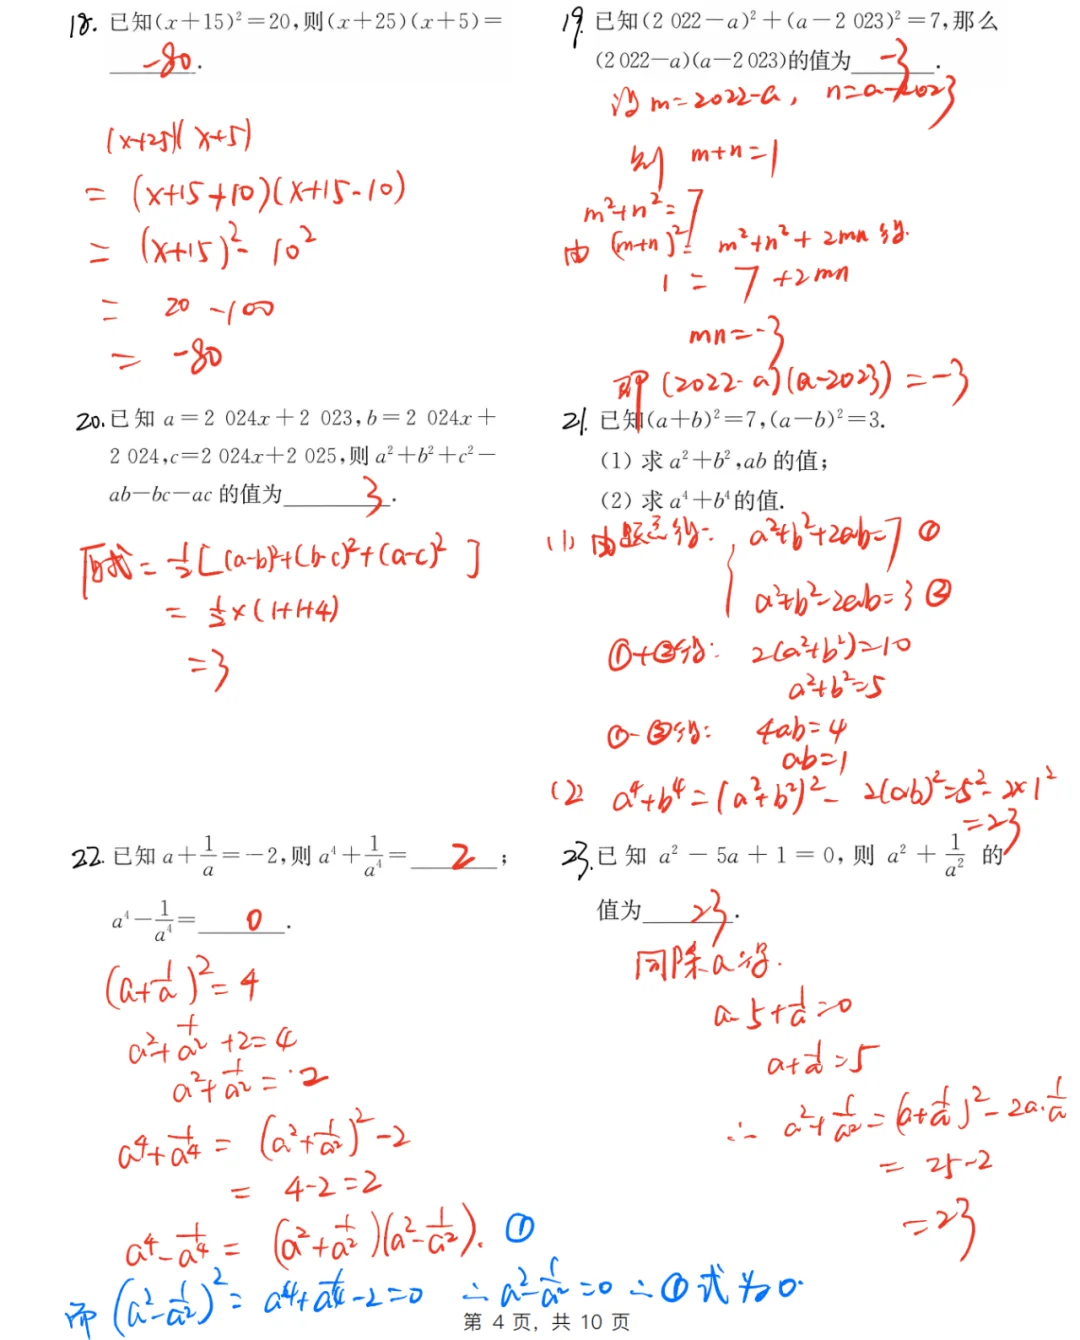 18. 已知(x+15)²=20,则(x+25)(x+5)=
-80.
(x+25)(x+5)
= (x+15+10)(x+15-10)
= (x+15)²- 10²
= 20 -100
= -80
19. 已知(2 022-a)²+(a-2 023)²=7,那么
(2 022-a)(a-2 023)的值为 -3 .
设 m=2022-a, n=a-2023
则 m+n=1
m²+n²=7
由 (m+n)²= m²+n²+2mn 得.
1 = 7+2mn
mn=-3
即 (2022-a)(a-2023)=-3
20. 已知 a=2 024x+2 023,b=2 024x+
2 024,c=2 024x+2 025,则 a²+b²+c²-
ab-bc-ac 的值为 3 .
原式= ½[(a-b)²+(b-c)²+(a-c)²]
= ½×(1+1+4)
=3
21. 已知(a+b)²=7,(a-b)²=3.
(1) 求 a²+b²,ab 的值;
(2) 求 a⁴+b⁴的值.
(1) 由题意得: a²+b²+2ab=7 ①
a²+b²-2ab=3 ②
①+②得: 2(a²+b²)=10
a²+b²=5
①-②得: 4ab=4
ab=1
(2) a⁴+b⁴=(a²+b²)²- 2(ab)²=5²-2×1²
=23
22. 已知 a+1/a=-2,则 a⁴+1/a⁴= 2 ;
a⁴-1/a⁴= 0 .
(a+1/a)²=4
a²+1/a²+2=4
a²+1/a²=2
a⁴+1/a⁴= (a²+1/a²)²-2
= 4-2=2
a⁴-1/a⁴= (a²+1/a²)(a²-1/a²). ①
而 (a²-1/a²)²= a⁴+1/a⁴-2=0 ∴a²-1/a²=0 ∴①式为0.
23. 已知 a²-5a+1=0,则 a²+1/a² 的
值为 23 .
同除a得.
a-5+1/a=0
a+1/a=5
∴ a²+1/a²=(a+1/a)²-2a·1/a
= 25-2
=23
第 4 页, 共 10 页